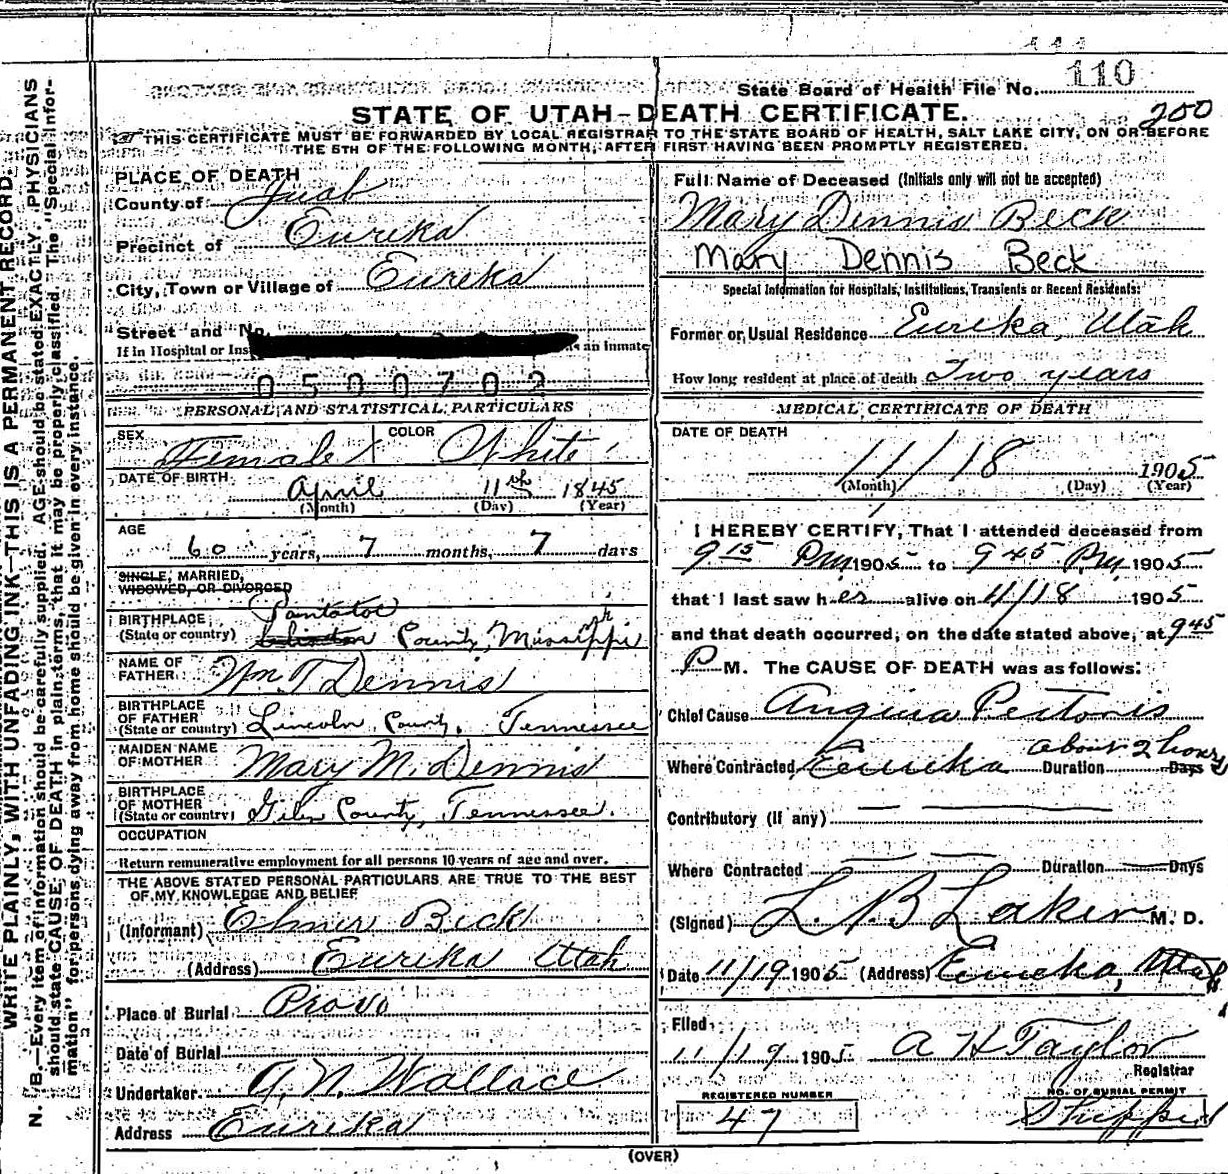 110
State Board of Health File No.
STATE OF UTAH—DEATH CERTIFICATE.
200
THIS CERTIFICATE MUST BE FORWARDED BY LOCAL REGISTRAR TO THE STATE BOARD OF HEALTH, SALT LAKE CITY, ON OR BEFORE
THE 5TH OF THE FOLLOWING MONTH, AFTER FIRST HAVING BEEN PROMPTLY REGISTERED.
WRITE PLAINLY, WITH UNFADING INK—THIS IS A PERMANENT RECORD.
N. B.—Every item of information should be carefully supplied. AGE should be stated EXACTLY. PHYSICIANS
should state CAUSE OF DEATH in plain terms, that it may be properly classified. The "Special Infor-
mation" for persons dying away from home should be given in every instance.
PLACE OF DEATH
County of Juab
Precinct of Eureka
City, Town or Village of Eureka
Street and No.
If in Hospital or Ins an Inmate
0500702
PERSONAL AND STATISTICAL PARTICULARS
SEX Female COLOR White
DATE OF BIRTH April 11th 1845
(Month) (Day) (Year)
AGE
60 years, 7 months, 7 days
SINGLE, MARRIED,
WIDOWED, OR DIVORCED
BIRTHPLACE
(State or country) County, Mississippi
NAME OF
FATHER Wm. T Dennis
BIRTHPLACE
OF FATHER
(State or country) Lincoln County, Tennessee
MAIDEN NAME
OF MOTHER Mary M. Dennis
BIRTHPLACE
OF MOTHER
(State or country) Giles County, Tennessee.
OCCUPATION
Return remunerative employment for all persons 10 years of age and over.
THE ABOVE STATED PERSONAL PARTICULARS ARE TRUE TO THE BEST
OF MY KNOWLEDGE AND BELIEF
(Informant) Elmer Beck
(Address) Eureka Utah
Place of Burial Provo
Date of Burial
Undertaker A. N. Wallace
Address Eureka
Full Name of Deceased (Initials only will not be accepted)
Mary Dennis Beck
Mary Dennis Beck
Special Information for Hospitals, Institutions, Transients or Recent Residents:
Former or Usual Residence Eureka, Utah
How long resident at place of death Two years
MEDICAL CERTIFICATE OF DEATH
DATE OF DEATH
11/18 1905
(Month) (Day) (Year)
I HEREBY CERTIFY, That I attended deceased from
9 15 Pm 1905 to 9 45 Pm, 1905
that I last saw her alive on 11/18 1905
and that death occurred, on the date stated above, at 9 45
P M. The CAUSE OF DEATH was as follows:
Chief Cause Angina Pectoris
about 2 hours
Where Contracted Eureka Duration Days
Contributory (If any)
Where Contracted Duration Days
(Signed) L. B Laker M. D.
Date 11/19 1905 (Address) Eureka, Utah
Filed
11/19 1905 A H Taylor
Registrar
REGISTERED NUMBER
47
NO. OF BURIAL PERMIT
Shipped
(OVER)